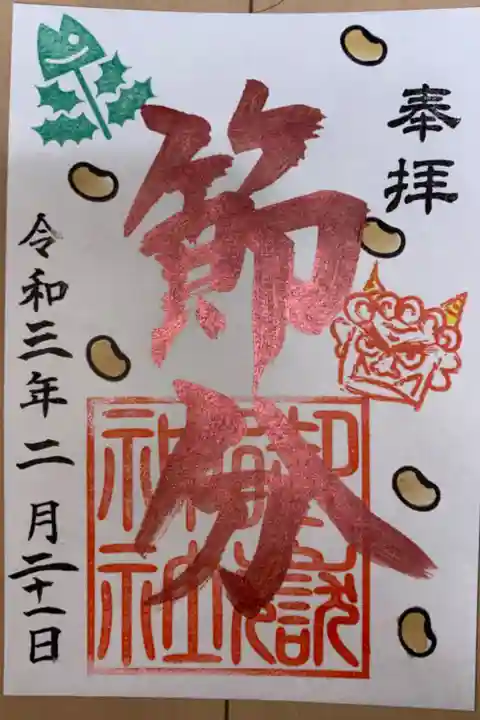 奉拝
節分
御嶽神社
令和三年二月二十一日